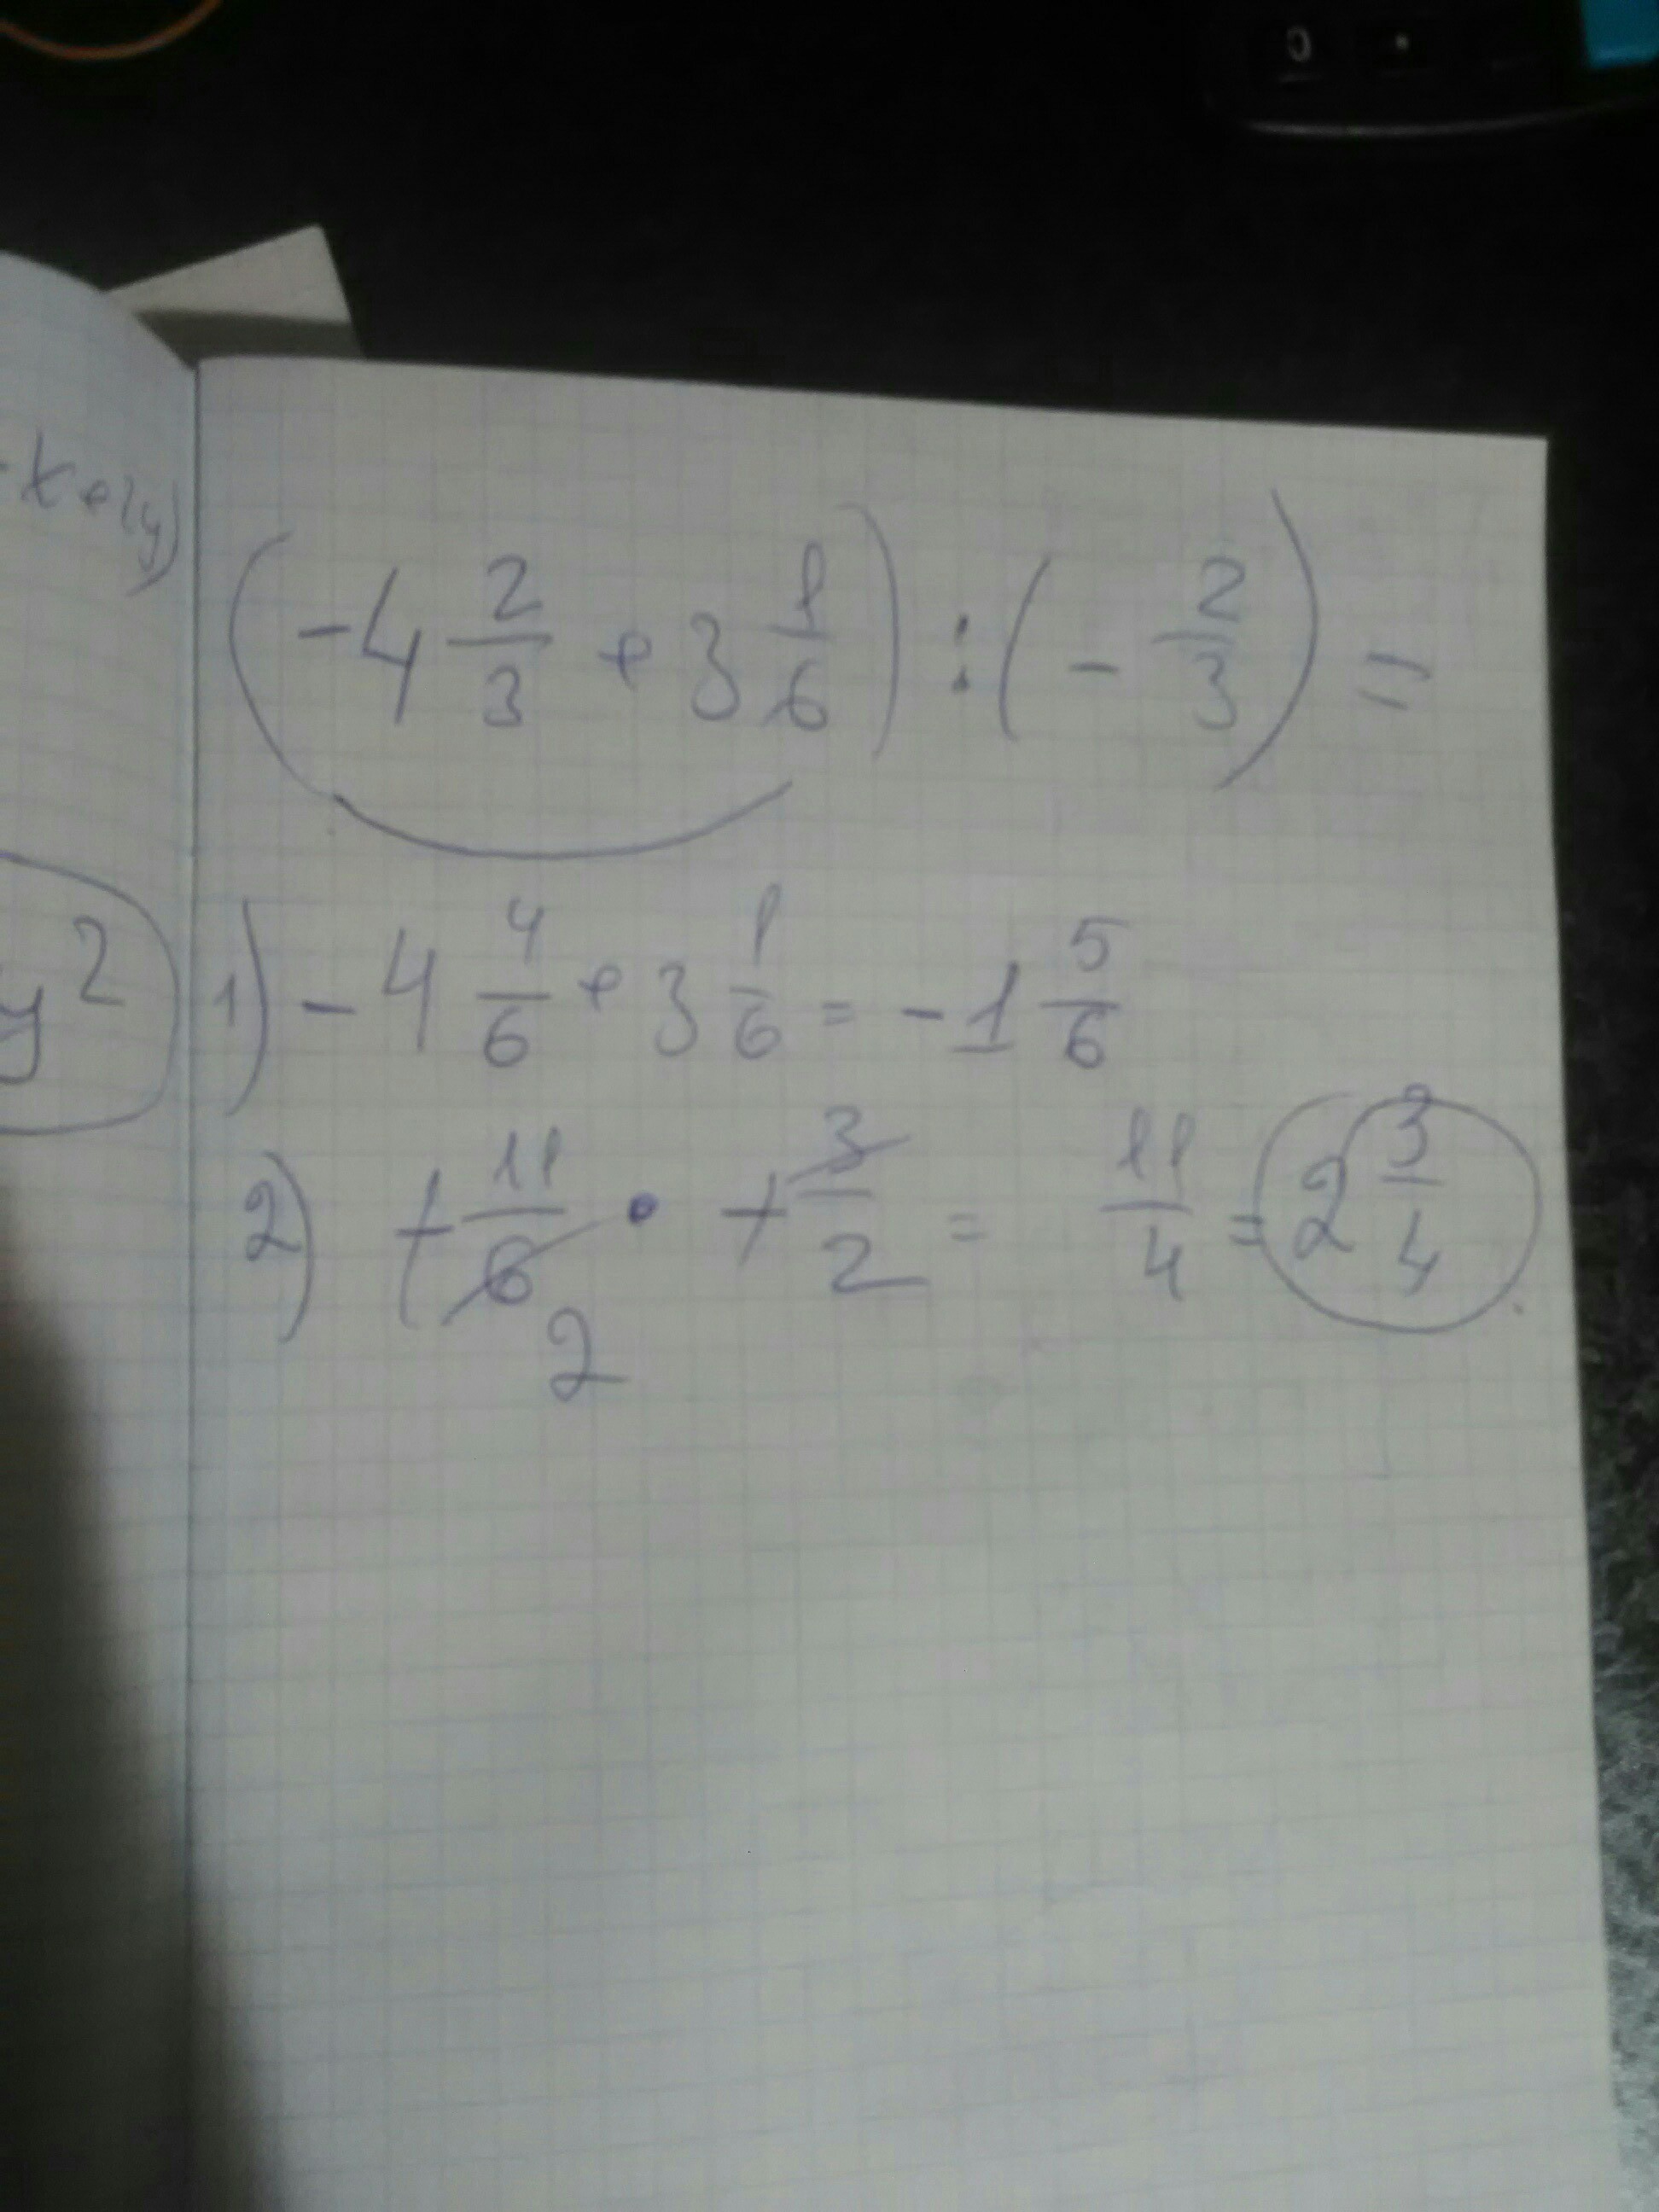 0 .
-x+2y)
(-4 2/3 + 3 1/6) : (- 2/3) =
y²
1) -4 4/6 + 3 1/6 = -1 5/6
2) + 11/6 · + 3/2 = 11/4 = 2 3/4
2